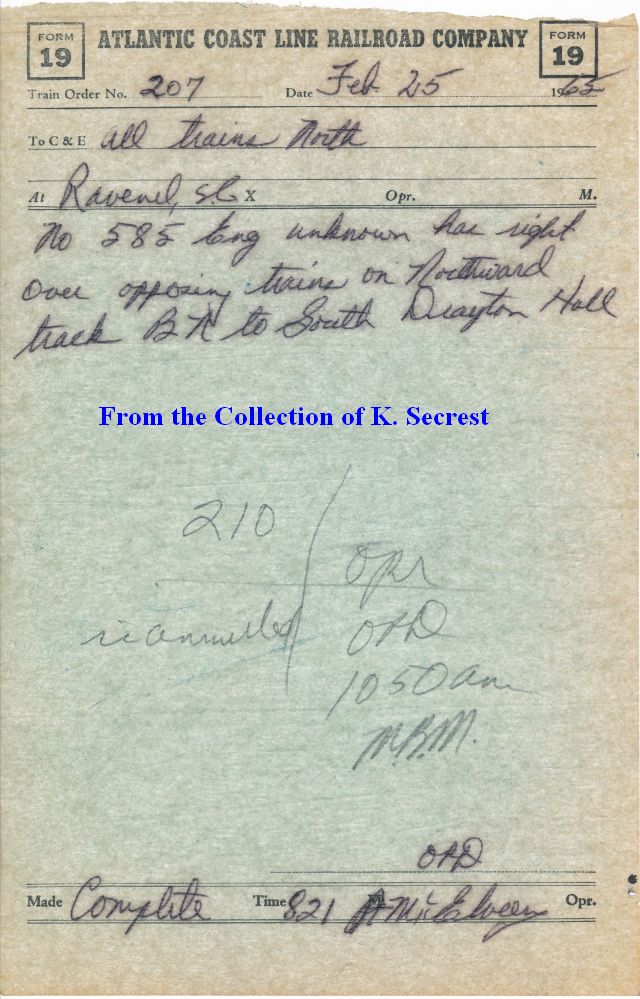 FORM 19 ATLANTIC COAST LINE RAILROAD COMPANY FORM 19
Train Order No. 207 Date Feb 25 1965
To C & E all trains North
At Ravenel, S.C X Opr. M.
No 585 Eng unknown has right
over opposing trains on Northward
track BN to South Drayton Hall
From the Collection of K. Secrest
210
is annulled
Opr
OHD
1050 am
M.B.M.
OHD
Made Complete Time 821 M McElveen Opr.